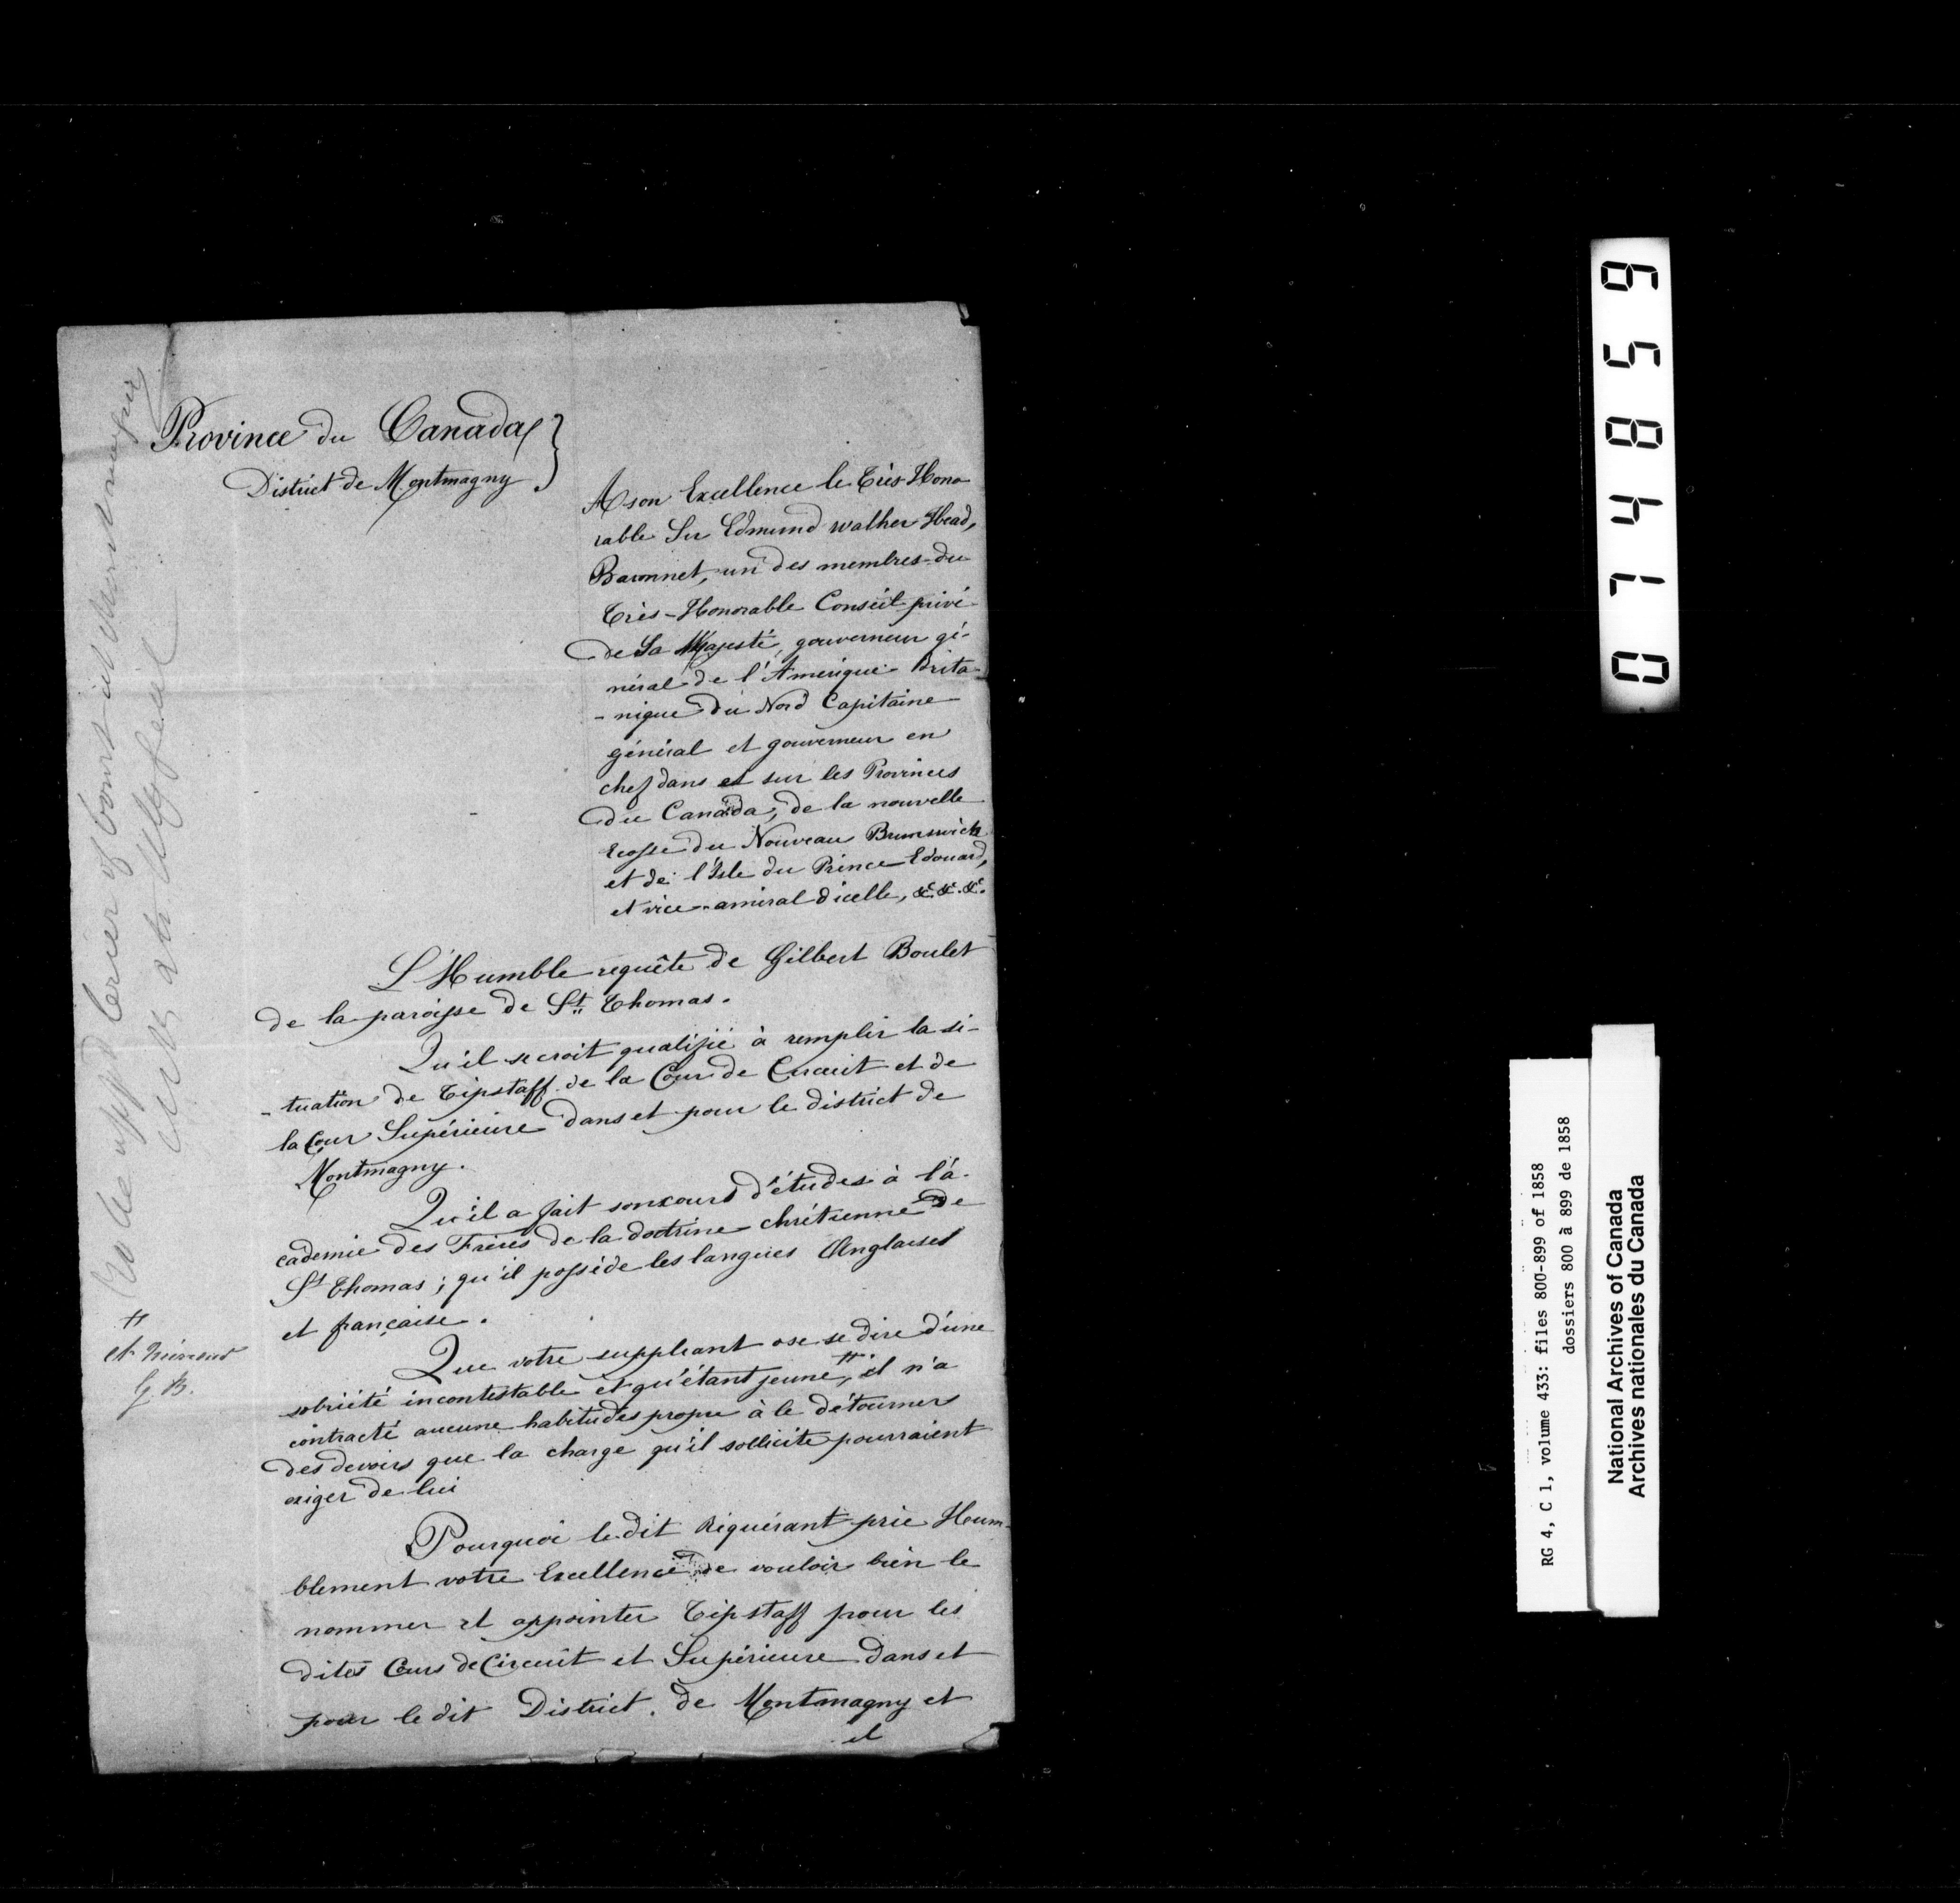 Province du Canada }
District de Montmagny }
A son Excellence le Très-Hono
rable Sir Edmund walker Head,
Baronnet, un des membres du
Très-Honorable Conseil privé
de Sa Majesté, gouverneur gé-
néral de l'Amérique Brita-
-nique du Nord Capitaine
général et gouverneur en
chef dans et sur les Provinces
du Canada, de la nouvelle
Ecosse du Nouveau Brunswick
et de l'Isle du Prince Edouard,
et vice-amiral dicelle, &c. &c. &c.
L'Humble requête de Gilbert Boulet
de la paroisse de St. Thomas.
Qu'il se croit qualifié à remplir la si-
-tuation de Tipstaff de la Cour de Circuit et de
la Cour Supérieure dans et pour le district de
Montmagny.
Qu'il a fait son cours d'études à l'a-
cademie des Frères de la doctrine chrétienne de
St Thomas ; qu'il possède les langues Anglaises
et française.
Que votre suppliant ose se dire d'une
sobriété incontestable et qu'étant jeune, # il n'a
contracté aucune habitudes propre à le détourner
des devoirs que la charge qu'il sollicite pourraient
exiger de lui
#
G. B.
Pourquoi le dit Réquérant prie Hum-
blement votre Excellence de vouloir bien le
nommer et appointer Tipstaff pour les
dites Cours de Circuit et Supérieure dans et
pour le dit District. de Montmagny et
il
To be appd Crier of court in
074859
RG 4, C 1, volume 433: files 800-899 of 1858
dossiers 800 à 899 de 1858
National Archives of Canada
Archives nationales du Canada